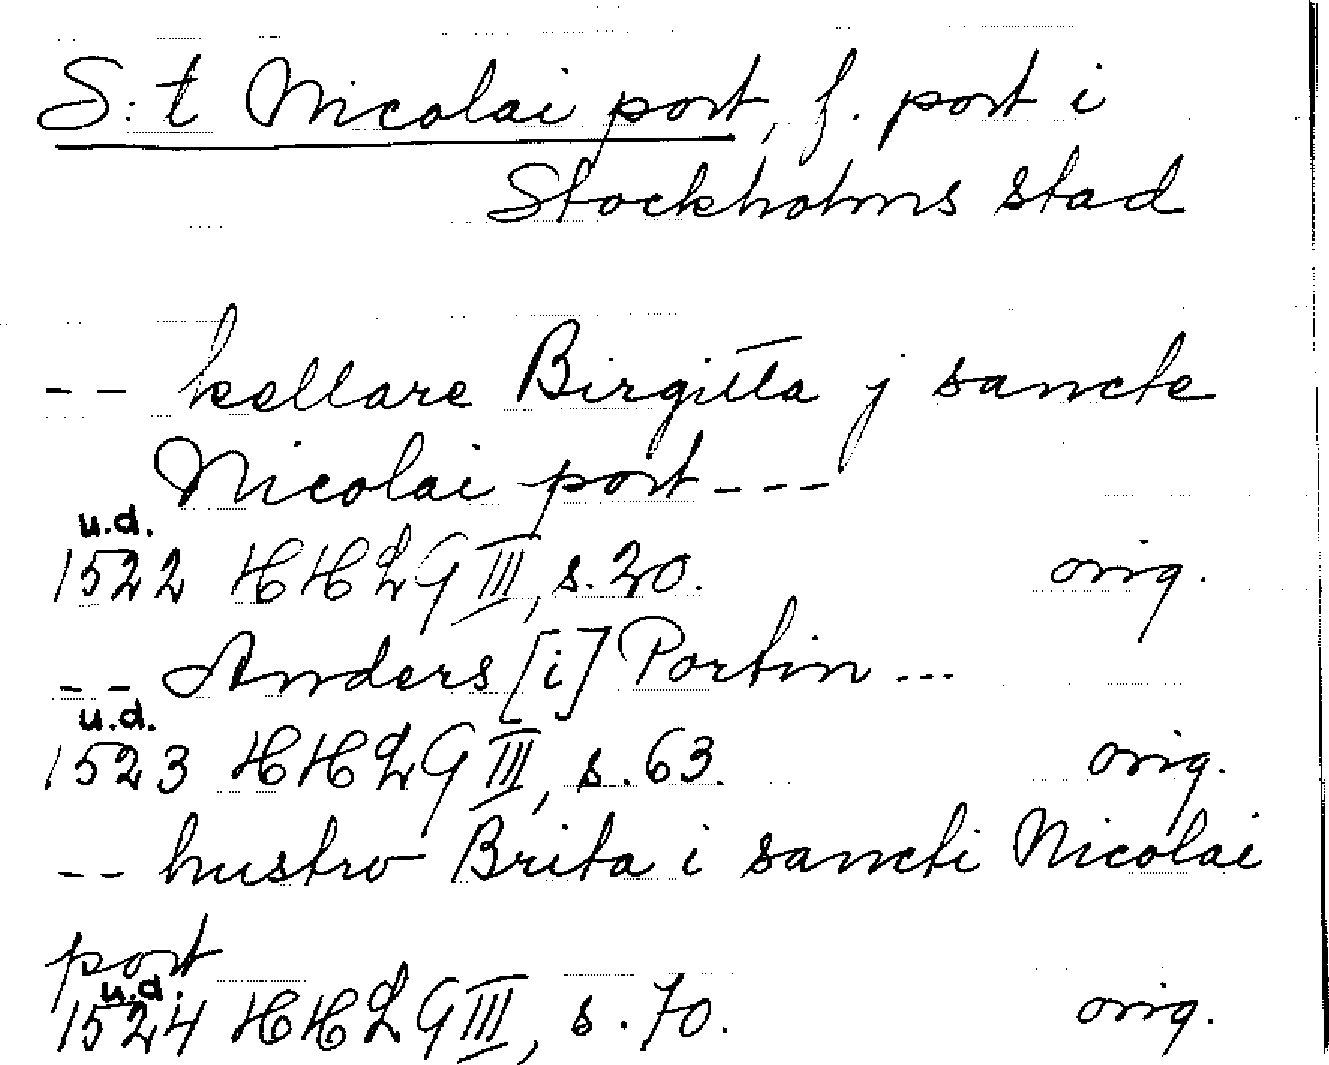 S:t Nicolai port, f. port i
Stockholms stad
-- kellare Birgitta j sancte
Nicolai port---
u.d.
1522 HHLG III, s. 20. orig.
-- Anders [i] Portin...
u.d.
1523 HHLG III, s. 63. orig.
-- hustro Brita i sancti Nicolai
port
u.d.
1524 HHLG III, s. 70. orig.